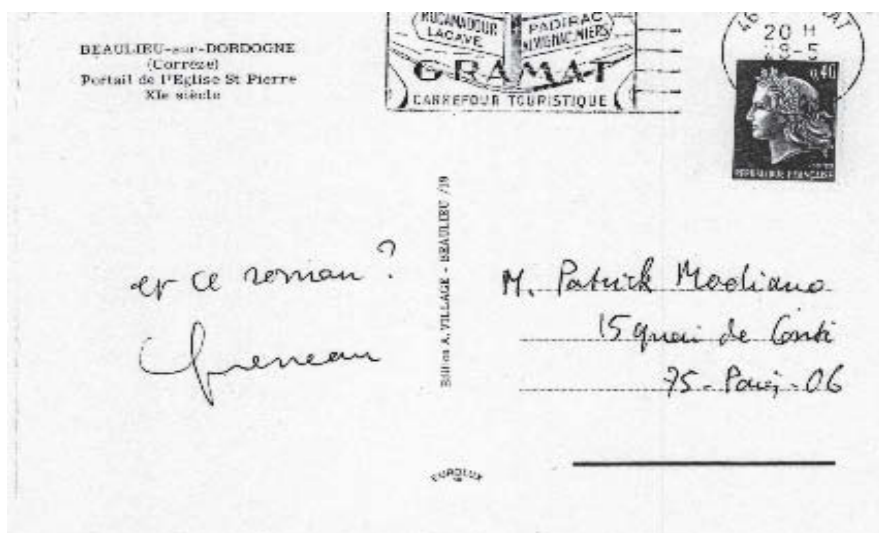 BEAULIEU-sur-DORDOGNE
(Corrèze)
Portail de l'Eglise St Pierre
XIe siècle
ROCAMADOUR
LACAVE
PADIRAC
GRAMAT
CARREFOUR TOURISTIQUE
20 H
28-5
0,40
REPUBLIQUE FRANÇAISE
et ce roman ?
Queneau
Edition A. VILLAGE - BEAULIEU /19
M. Patrick Modiano
15 quai de Conti
75-Paris-06
EUROLUX